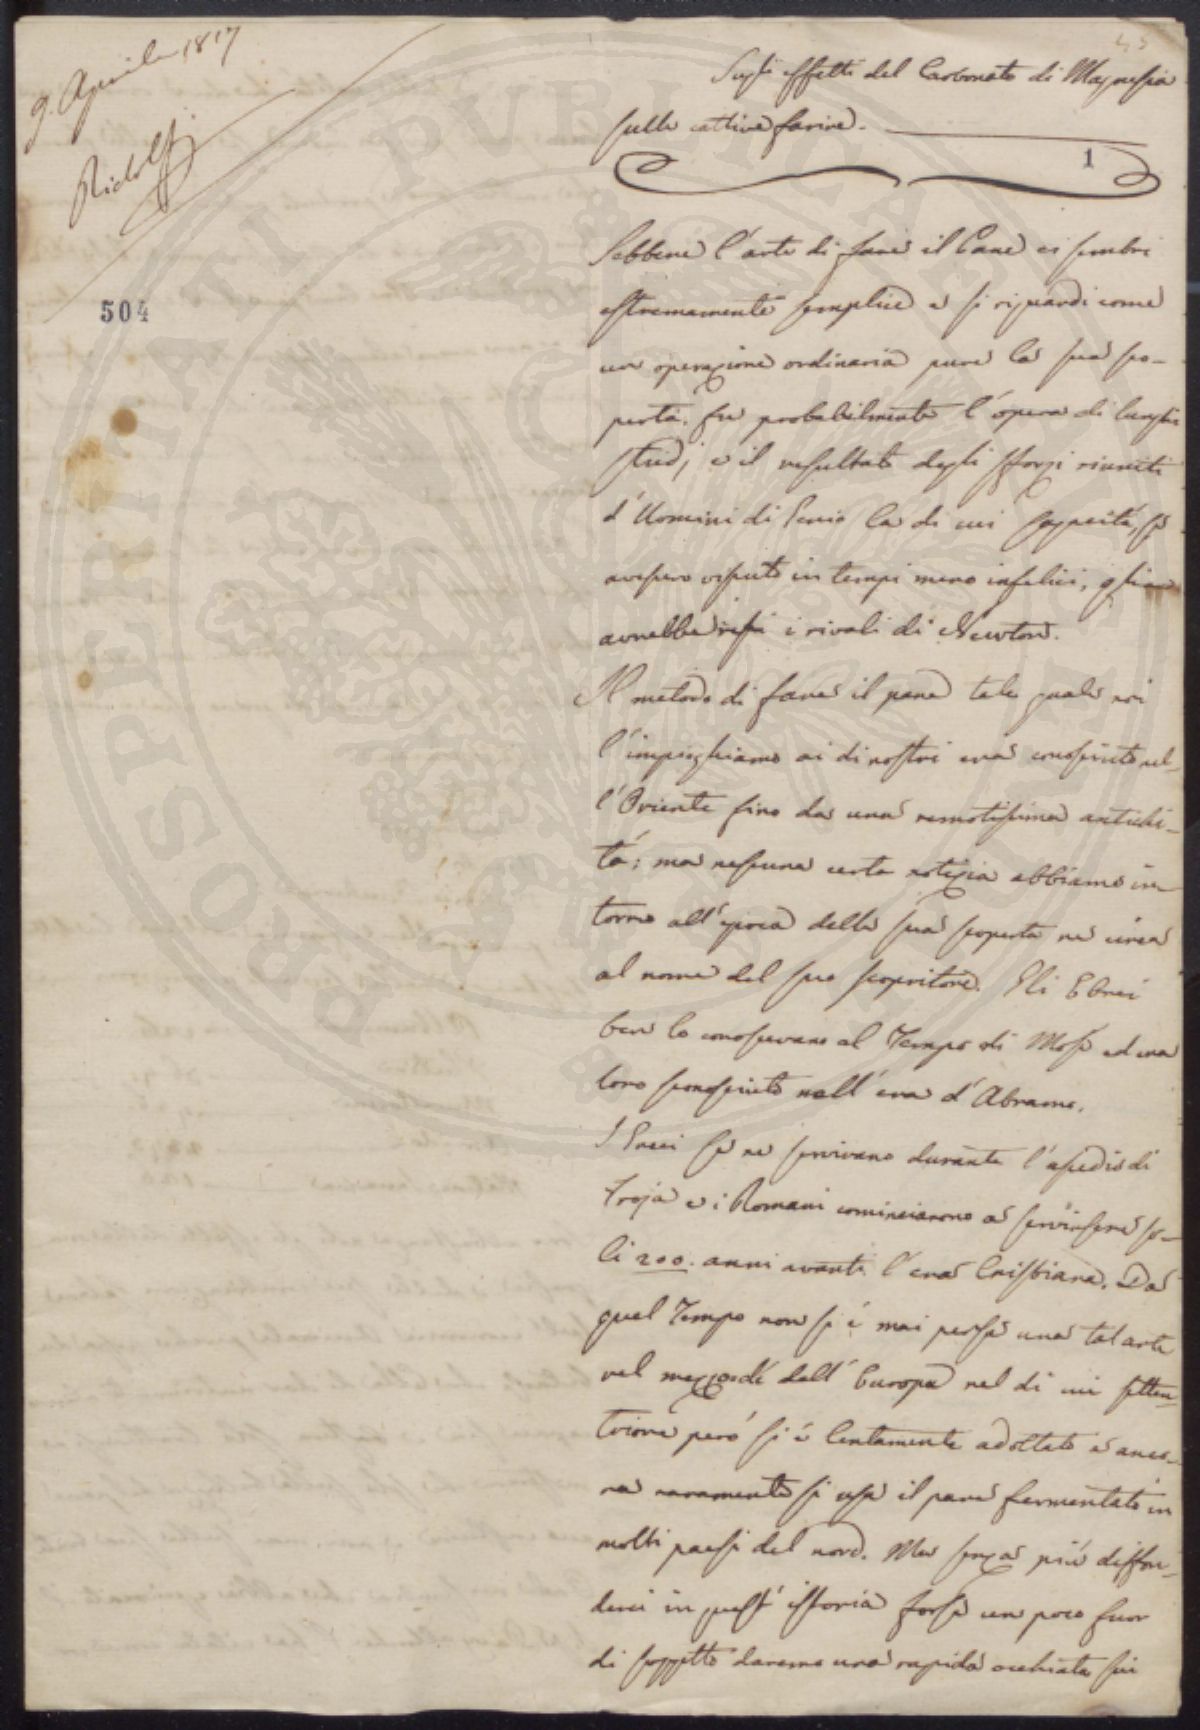 9. Aprile 1817
Ridolfi
504
45
Sugli effetti del Carbonato di Magnesia
sulle cattive farine.
1
Sebbene l'arte di fare il Pane ci sembri
estremamente semplice e si riguardi come
un operazione ordinaria pure la sua sco-
perta fu probabilmente l'opera di lunghi
studj e il resultato degli sforzi riuniti
d'Uomini di Genio la di cui sagacità, se
avessero vissuto in tempi meno infelici, gli
avrebbe resi i rivali di Newton.
Il metodo di fare il pane tale quale noi
l'impieghiamo ai dì nostri era conosciuto nel-
l'Oriente fino da una remotissima antichi-
tà; ma nessuna certa notizia abbiamo in-
torno all'epoca della sua scoperta ne circa
al nome del suo scopritore. Gli Ebrei
ben lo conoscevano al Tempo di Mosè ed era
loro sconosciuto nell'era d'Abramo.
I Greci se ne servivano durante l'assedio di
Troja e i Romani cominciarono a servirsene so-
li 200. anni avanti l'era Cristiana. Da
quel Tempo non si è mai persa una tal arte
nel mezzodì dell'Europa nel di cui setten-
trione però si è lentamente adottato e anco-
ra raramente si usa il pane fermentato in
molti paesi del nord. Ma senza più diffon-
derci in quest'istoria forse un poco fuor
di soggetto daremo una rapida occhiata sui
PROSPERITATI PUBLICAE AUGENDAE